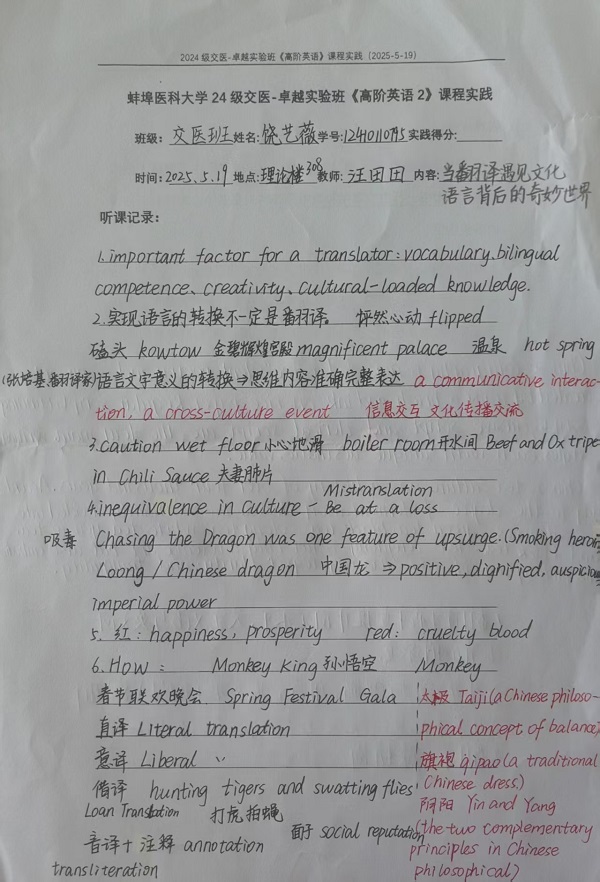 2024 级交医-卓越实验班《高阶英语》课程实践（2025-5-19）
蚌埠医科大学 24 级交医-卓越实验班《高阶英语 2》课程实践
班级: 交医班 姓名: 饶艺薇 学号: 12410110795 实践得分:
时间: 2025.5.19 地点: 理论楼308 教师: 汪田田 内容: 当翻译遇见文化
语言背后的奇妙世界
听课记录:
1.important factor for a translator: vocabulary、bilingual
competence、creativity、cultural-loaded knowledge.
2.实现语言的转换不一定是翻译。 怦然心动 flipped
磕头 kowtow 金碧辉煌宫殿 magnificent palace 温泉 hot spring
(张培基.翻译家)语言文字意义的转换⇒思维内容准确完整表达 a communicative interac-
tion, a cross-culture event 信息交互 文化传播交流
3.caution wet floor 小心地滑 boiler room 开水间 Beef and Ox tripe
in Chili Sauce 夫妻肺片
4.inequivalence in culture - Mistranslation
Be at a loss
吸毒 Chasing the Dragon was one feature of upsurge. (Smoking heroin
Loong / Chinese dragon 中国龙 ⇒ positive, dignified, auspicious
imperial power
5. 红: happiness, prosperity red: cruelty blood
6. How: Monkey King 孙悟空 Monkey
春节联欢晚会 Spring Festival Gala 太极 Taiji(a Chinese philoso-
直译 Literal translation phical concept of balance)
意译 Liberal 〃 旗袍 qipao(a traditional
借译 hunting tigers and swatting flies Chinese dress)
Loan Translation 打虎拍蝇 阴阳 Yin and Yang
音译+注释 annotation 面子 social reputation (the two complementary
transliteration principles in Chinese
philosophical)